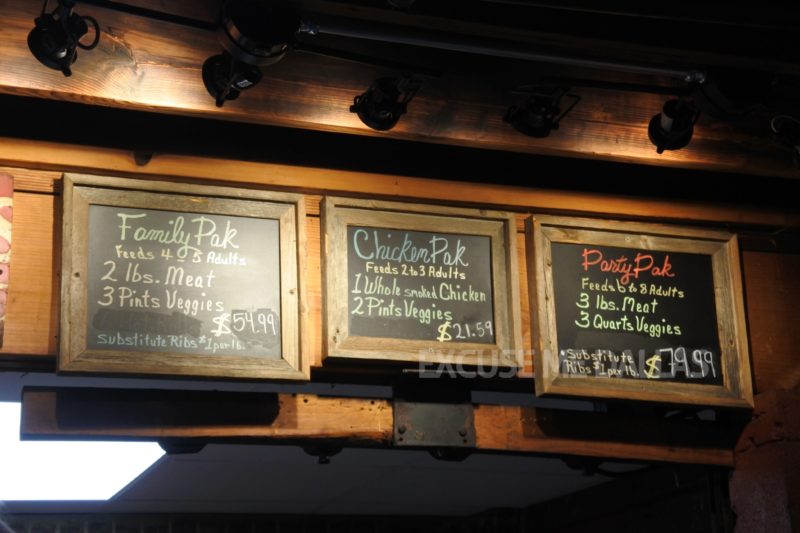 Family Pak
Feeds 4-5 Adults
2 lbs. Meat
3 Pints Veggies
$54.99
Substitute Ribs $1 per lb.
Chicken Pak
Feeds 2 to 3 Adults
1 Whole smoked Chicken
2 Pints Veggies
$21.59
Party Pak
Feeds 6 to 8 Adults
3 lbs. Meat
3 Quarts Veggies
• Substitute
Ribs $1 per lb.
$79.99